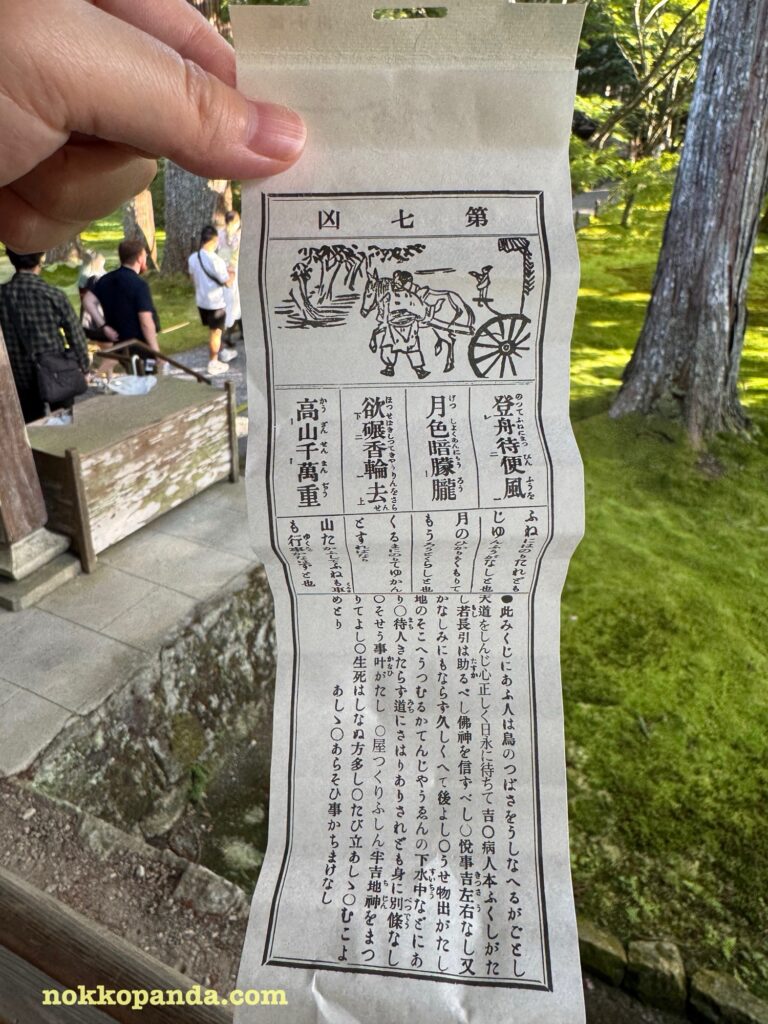 第七凶
登舟待便風
月色暗朦朧
欲碾香輪去
高山千萬重
ふねにはのりたれども
じゆんふうがなしと也
月のひかりもくもりて
もうろうとくらしと也
くるまにのりてゆかん
とすれども
山たかふしてふねも車
も行事かなはずと也
●此みくじにあふ人は鳥のつばさをうしなへるがごとし
天道をしんじ心正しく日永に待ちて吉〇病人本ふくしがた
し若長引は助るべし佛神を信すべし〇悦事吉左右なし又
かなしみにもならず久しくへて後よし〇うせ物出がたし
地のそこへうつむるかてんじやうゑんの下水中などにあ
り〇待人きたらす道にさはりありされども身に別條なし
〇そせう事叶がたし 〇屋つくりふしん半吉地神をまつ
りてよし〇生死はしなぬ方多し〇たび立あしゝ〇むこよ
めとり あしゝ〇あらそひ事かちまけなし
nokkopanda.com